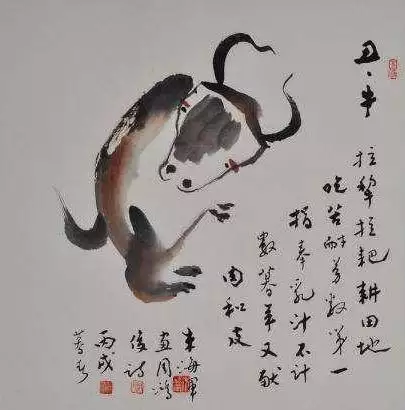 丑、牛
拉犁拉耙耕田地
吃苦耐劳数第一
奉乳汁不计
数暮年又献
肉和皮
海軍
画周鴻
俊诗
丙戌
暮春